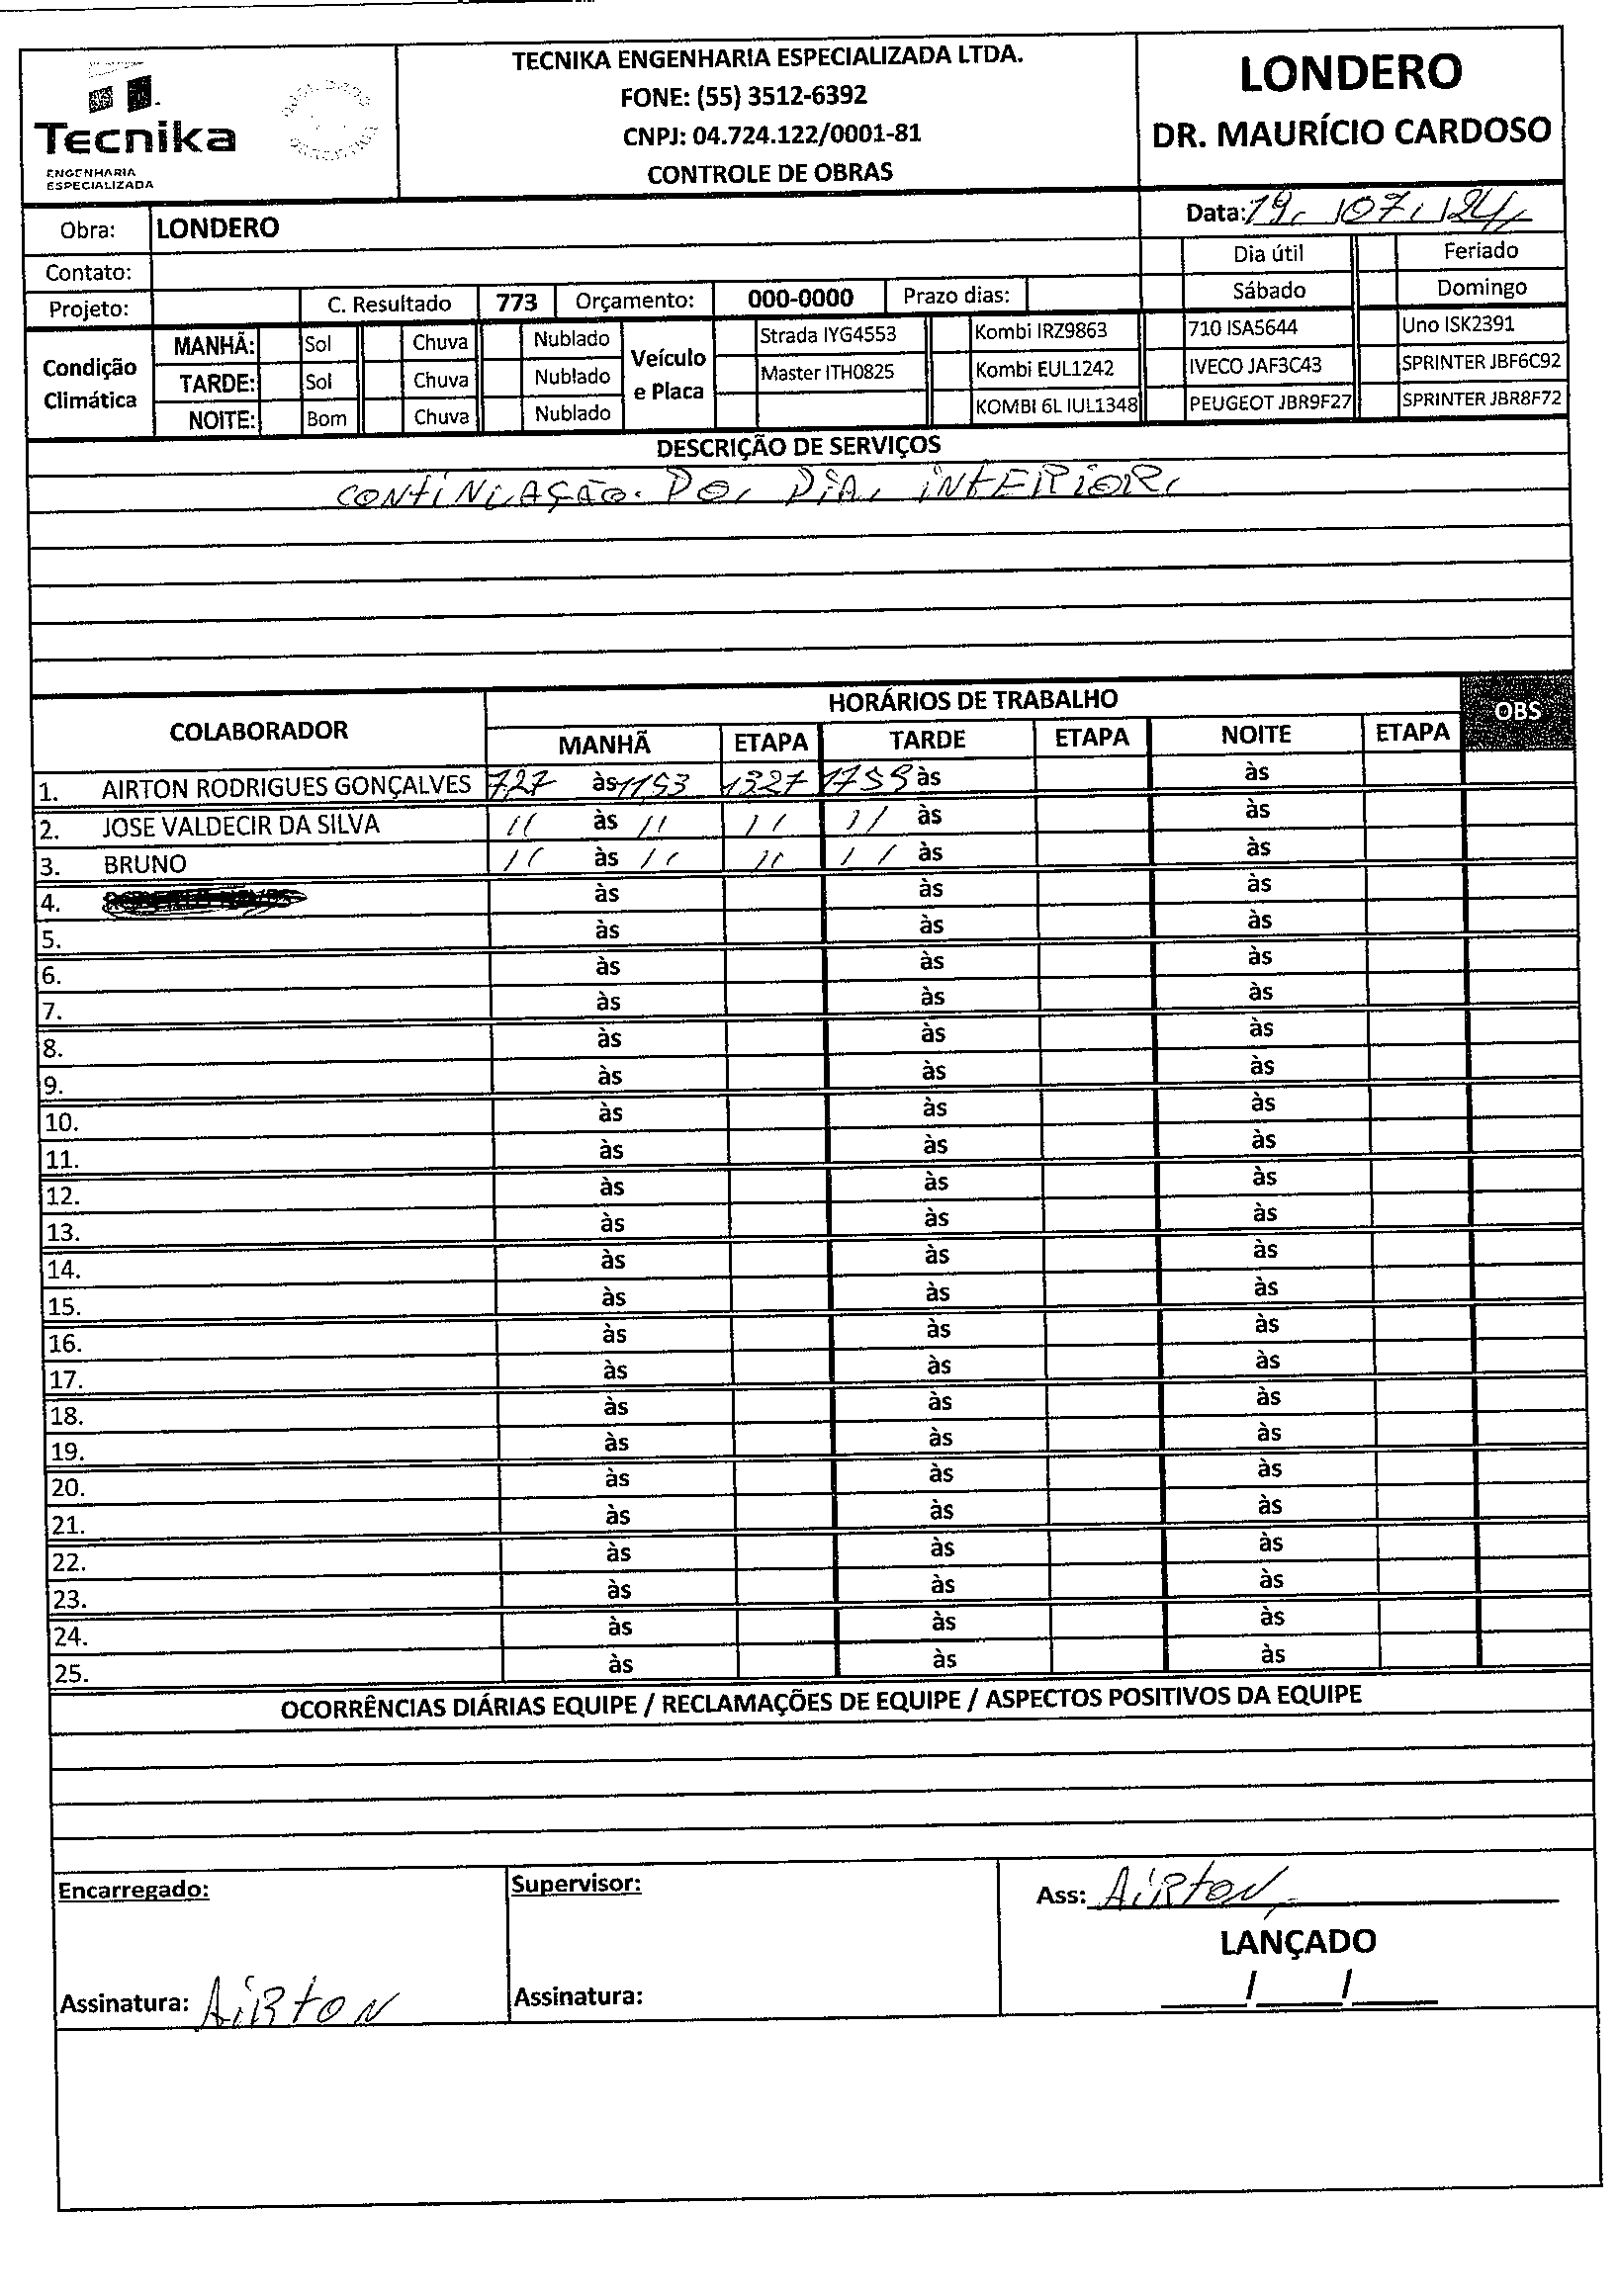 TECNIKA ENGENHARIA ESPECIALIZADA LTDA.
FONE: (55) 3512-6392
CNPJ: 04.724.122/0001-81
CONTROLE DE OBRAS
Tecnika
ENGENHARIA
ESPECIALIZADA
LONDERO
DR. MAURÍCIO CARDOSO
Obra: LONDERO
Data: 19, 107, 124,
Contato:
Dia útil Feriado
Projeto: C. Resultado 773 Orçamento: 000-0000 Prazo dias: Sábado Domingo
Condição Climática
MANHÃ: Sol Chuva Nublado
TARDE: Sol Chuva Nublado
NOITE: Bom Chuva Nublado
Veículo e Placa
Strada IYG4553 Kombi IRZ9863 710 ISA5644 Uno ISK2391
Master ITH0825 Kombi EUL1242 IVECO JAF3C43 SPRINTER JBF6C92
KOMBI 6L IUL1348 PEUGEOT JBR9F27 SPRINTER JBR8F72
DESCRIÇÃO DE SERVIÇOS
CONTINUAÇÃO. DO, DIA, INTERIOR,
COLABORADOR HORÁRIOS DE TRABALHO OBS
MANHÃ ETAPA TARDE ETAPA NOITE ETAPA
1. AIRTON RODRIGUES GONÇALVES 7,27 às 11,53 1327 1759 às às
2. JOSE VALDECIR DA SILVA 11 às 11 11 11 às às
3. BRUNO 11 às 11 11 11 às às
4. às às às
5. às às às
6. às às às
7. às às às
8. às às às
9. às às às
10. às às às
11. às às às
12. às às às
13. às às às
14. às às às
15. às às às
16. às às às
17. às às às
18. às às às
19. às às às
20. às às às
21. às às às
22. às às às
23. às às às
24. às às às
25. às às às
OCORRÊNCIAS DIÁRIAS EQUIPE / RECLAMAÇÕES DE EQUIPE / ASPECTOS POSITIVOS DA EQUIPE
Encarregado:
Assinatura: AIRTON
Supervisor:
Assinatura:
Ass: AIRTON,
LANÇADO
___/___/___